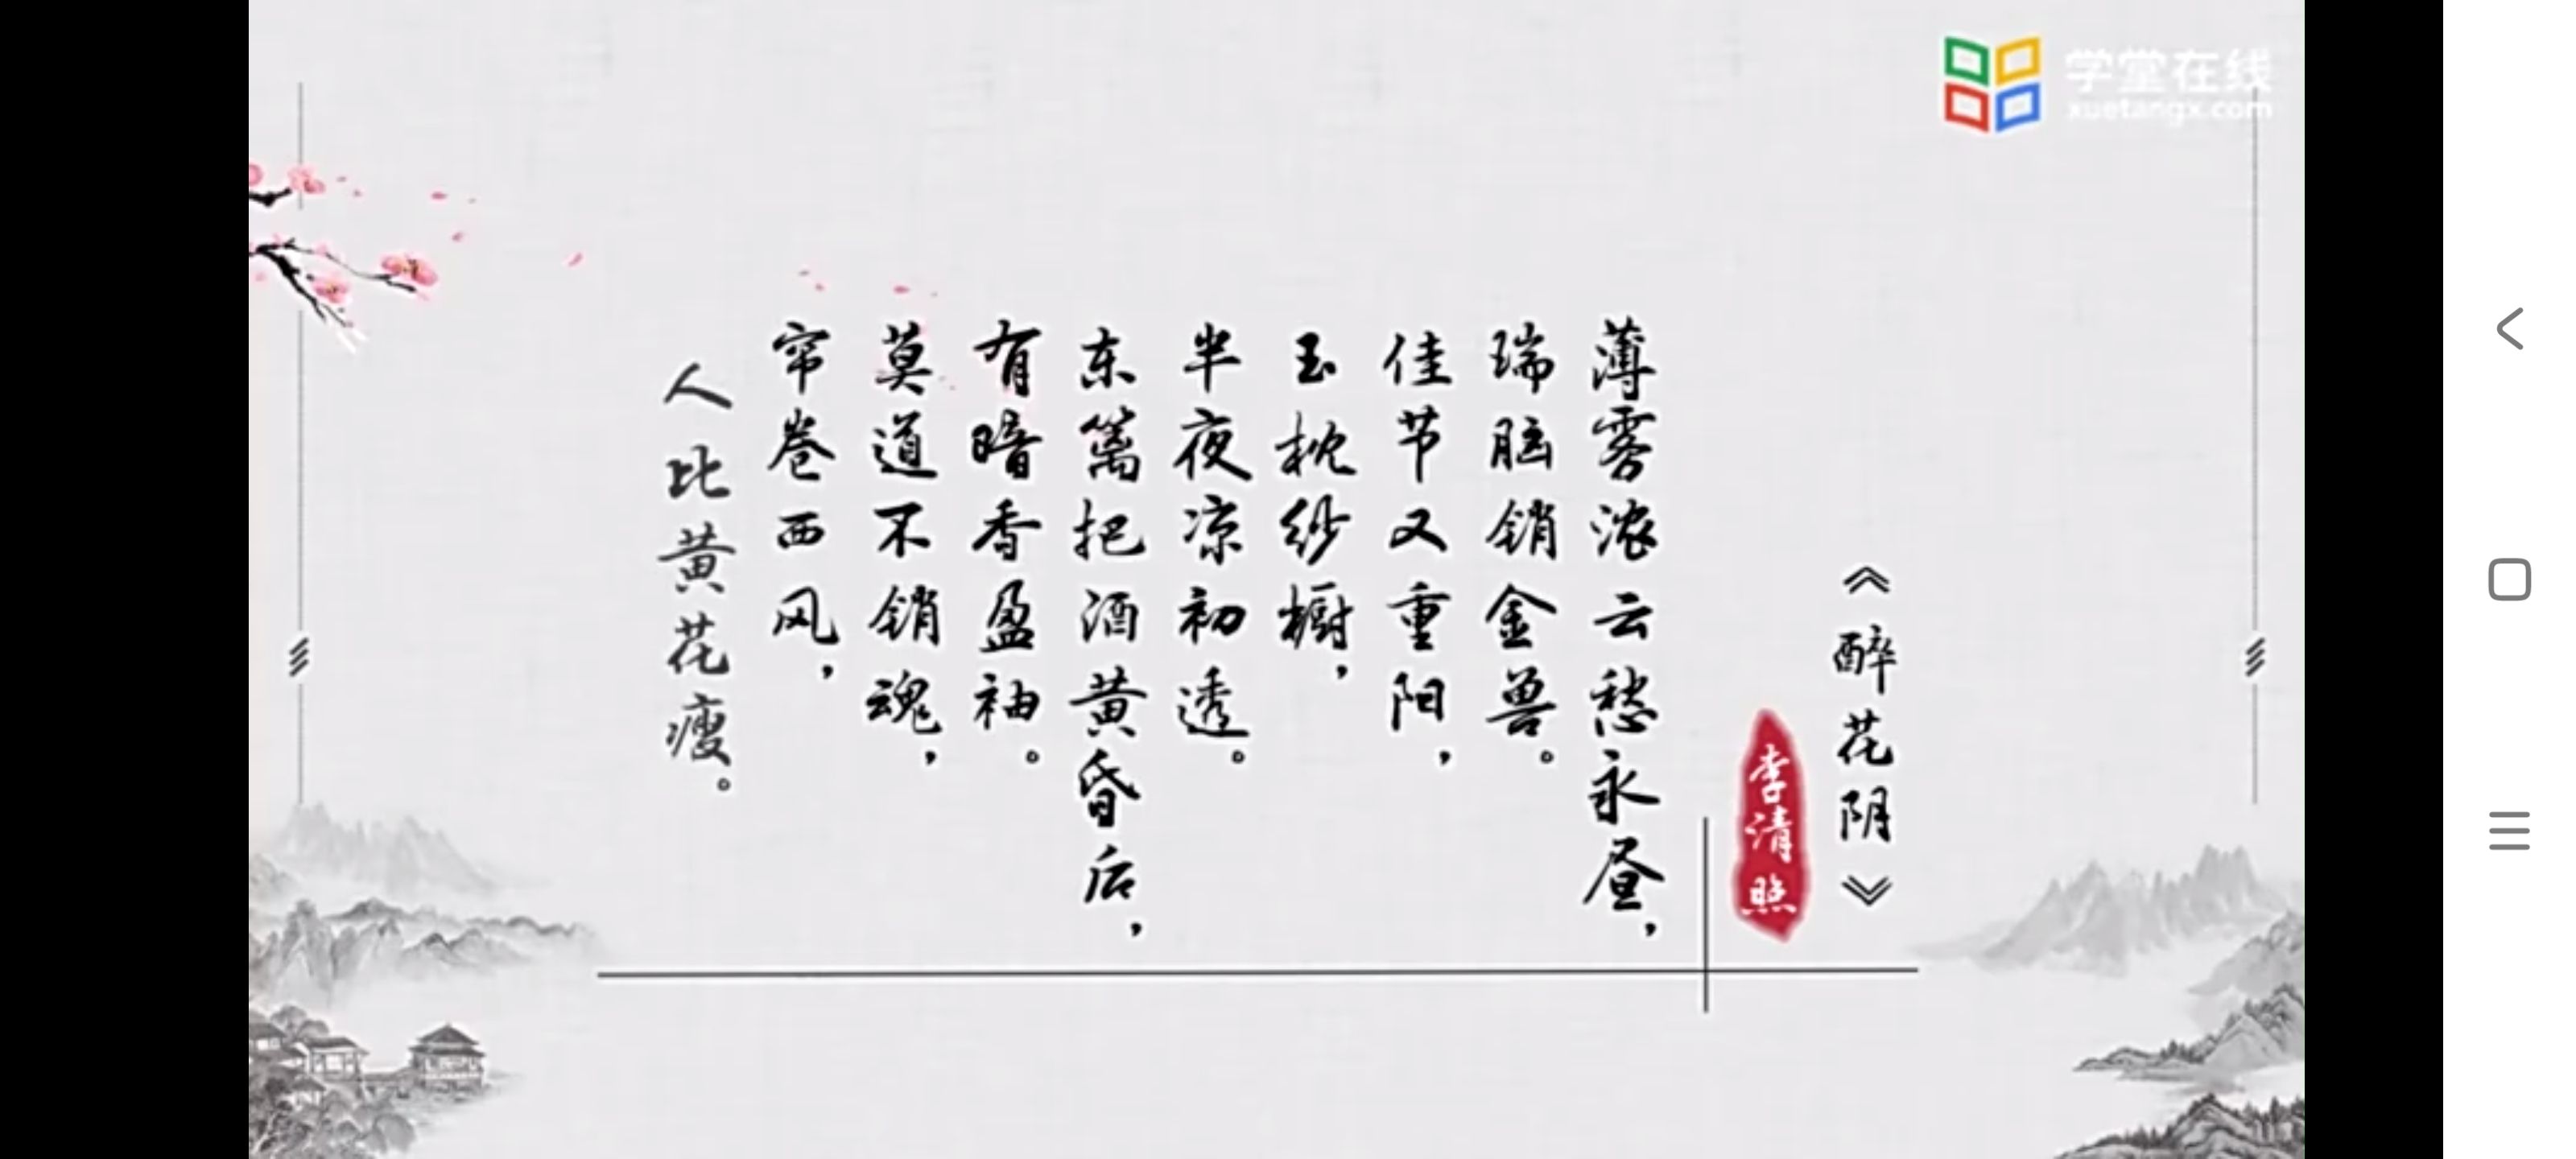 学堂在线
xuetangx.com
《醉花阴》
李清照
薄雾浓云愁永昼，
瑞脑销金兽。
佳节又重阳，
玉枕纱橱，
半夜凉初透。
东篱把酒黄昏后，
有暗香盈袖。
莫道不销魂，
帘卷西风，
人比黄花瘦。